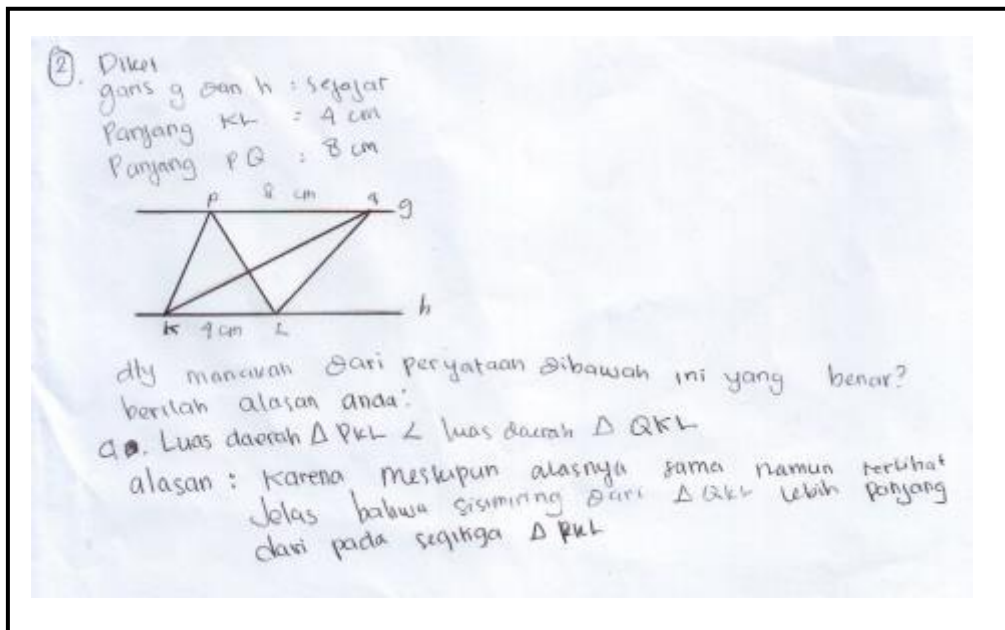 2. Diket
garis g dan h : sejajar
Panjang KL = 4 cm
Panjang PQ : 8 cm
P 8 cm q g
K 4 cm L h
dty manakah dari peryataan dibawah ini yang benar?
berilah alasan anda!
a. Luas daerah Δ PKL < luas daerah Δ QKL
alasan : karena meskipun alasnya sama namun terlihat
Jelas bahwa sisimiring dari Δ QKL lebih panjang
dari pada segitiga Δ PKL